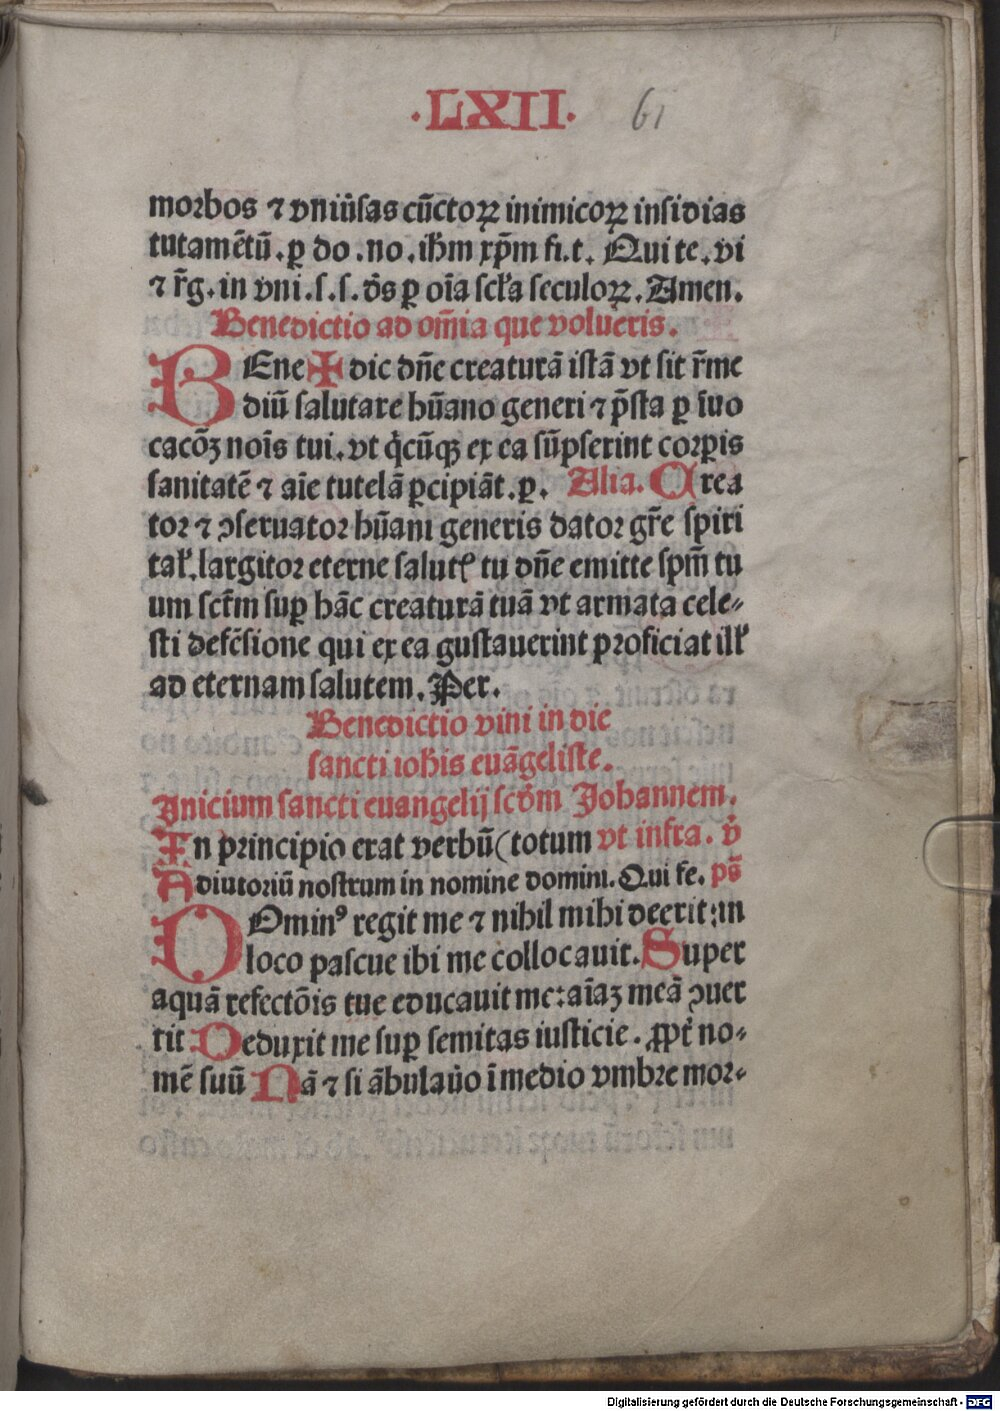 ·LXII· 61
morbos ⁊ vniũsas cũctoꝝ inimicoꝝ insidias
tutamẽtũ. ꝑ do. no. ihm̃ xp̃m fi. t. Qui te. vi
⁊ r̃g. in vni. s. s. d̃s ꝑ oĩa scƚa seculoꝝ. Amen.
Benedictio ad om̃ia que volueris.
BEne✠dic dñe creaturã istã vt sit r̃me
diũ salutare hũano generi ⁊ p̃sta ꝑ ĩuo
cacõꝫ noĩs tui. vt q̇cũqꝫ ex ea sũpserint corꝑis
sanitatẽ ⁊ aĩe tutelã ꝑcipiãt. ꝑ. Alia. Crea
tor ⁊ ↄseruator hũani generis dator gr̃e spiri
taƚ. largitor eterne salutꝭ tu dñe emitte spm̃ tu
um sct̃m suꝑ hãc creaturã tuã vt armata cele⸗
sti defẽsione qui ex ea gustauerint proficiat ilƚ
ad eternam salutem. Per.
Benedictio vini in die
sancti ioh̃is euãgeliste.
Inicium sancti euangelij scd̃m Johannem.
In principio erat verbũ(totum vt infra. v̇
Adiutoriũ nostrum in nomine domini. Qui fe. ps̃
DOminꝰ regit me ⁊ nihil mihi deerit: in
loco pascue ibi me collocauit. Super
aquã refectõis tue educauit me: aĩaꝫ meã ↄuer
tit Deduxit me suꝑ semitas iusticie. ꝓpt̃ no⸗
mẽ suũ Nã ⁊ si ãbulaũo ĩ medio vmbre mor⸗
Digitalisierung gefördert durch die Deutsche Forschungsgemeinschaft - DFG